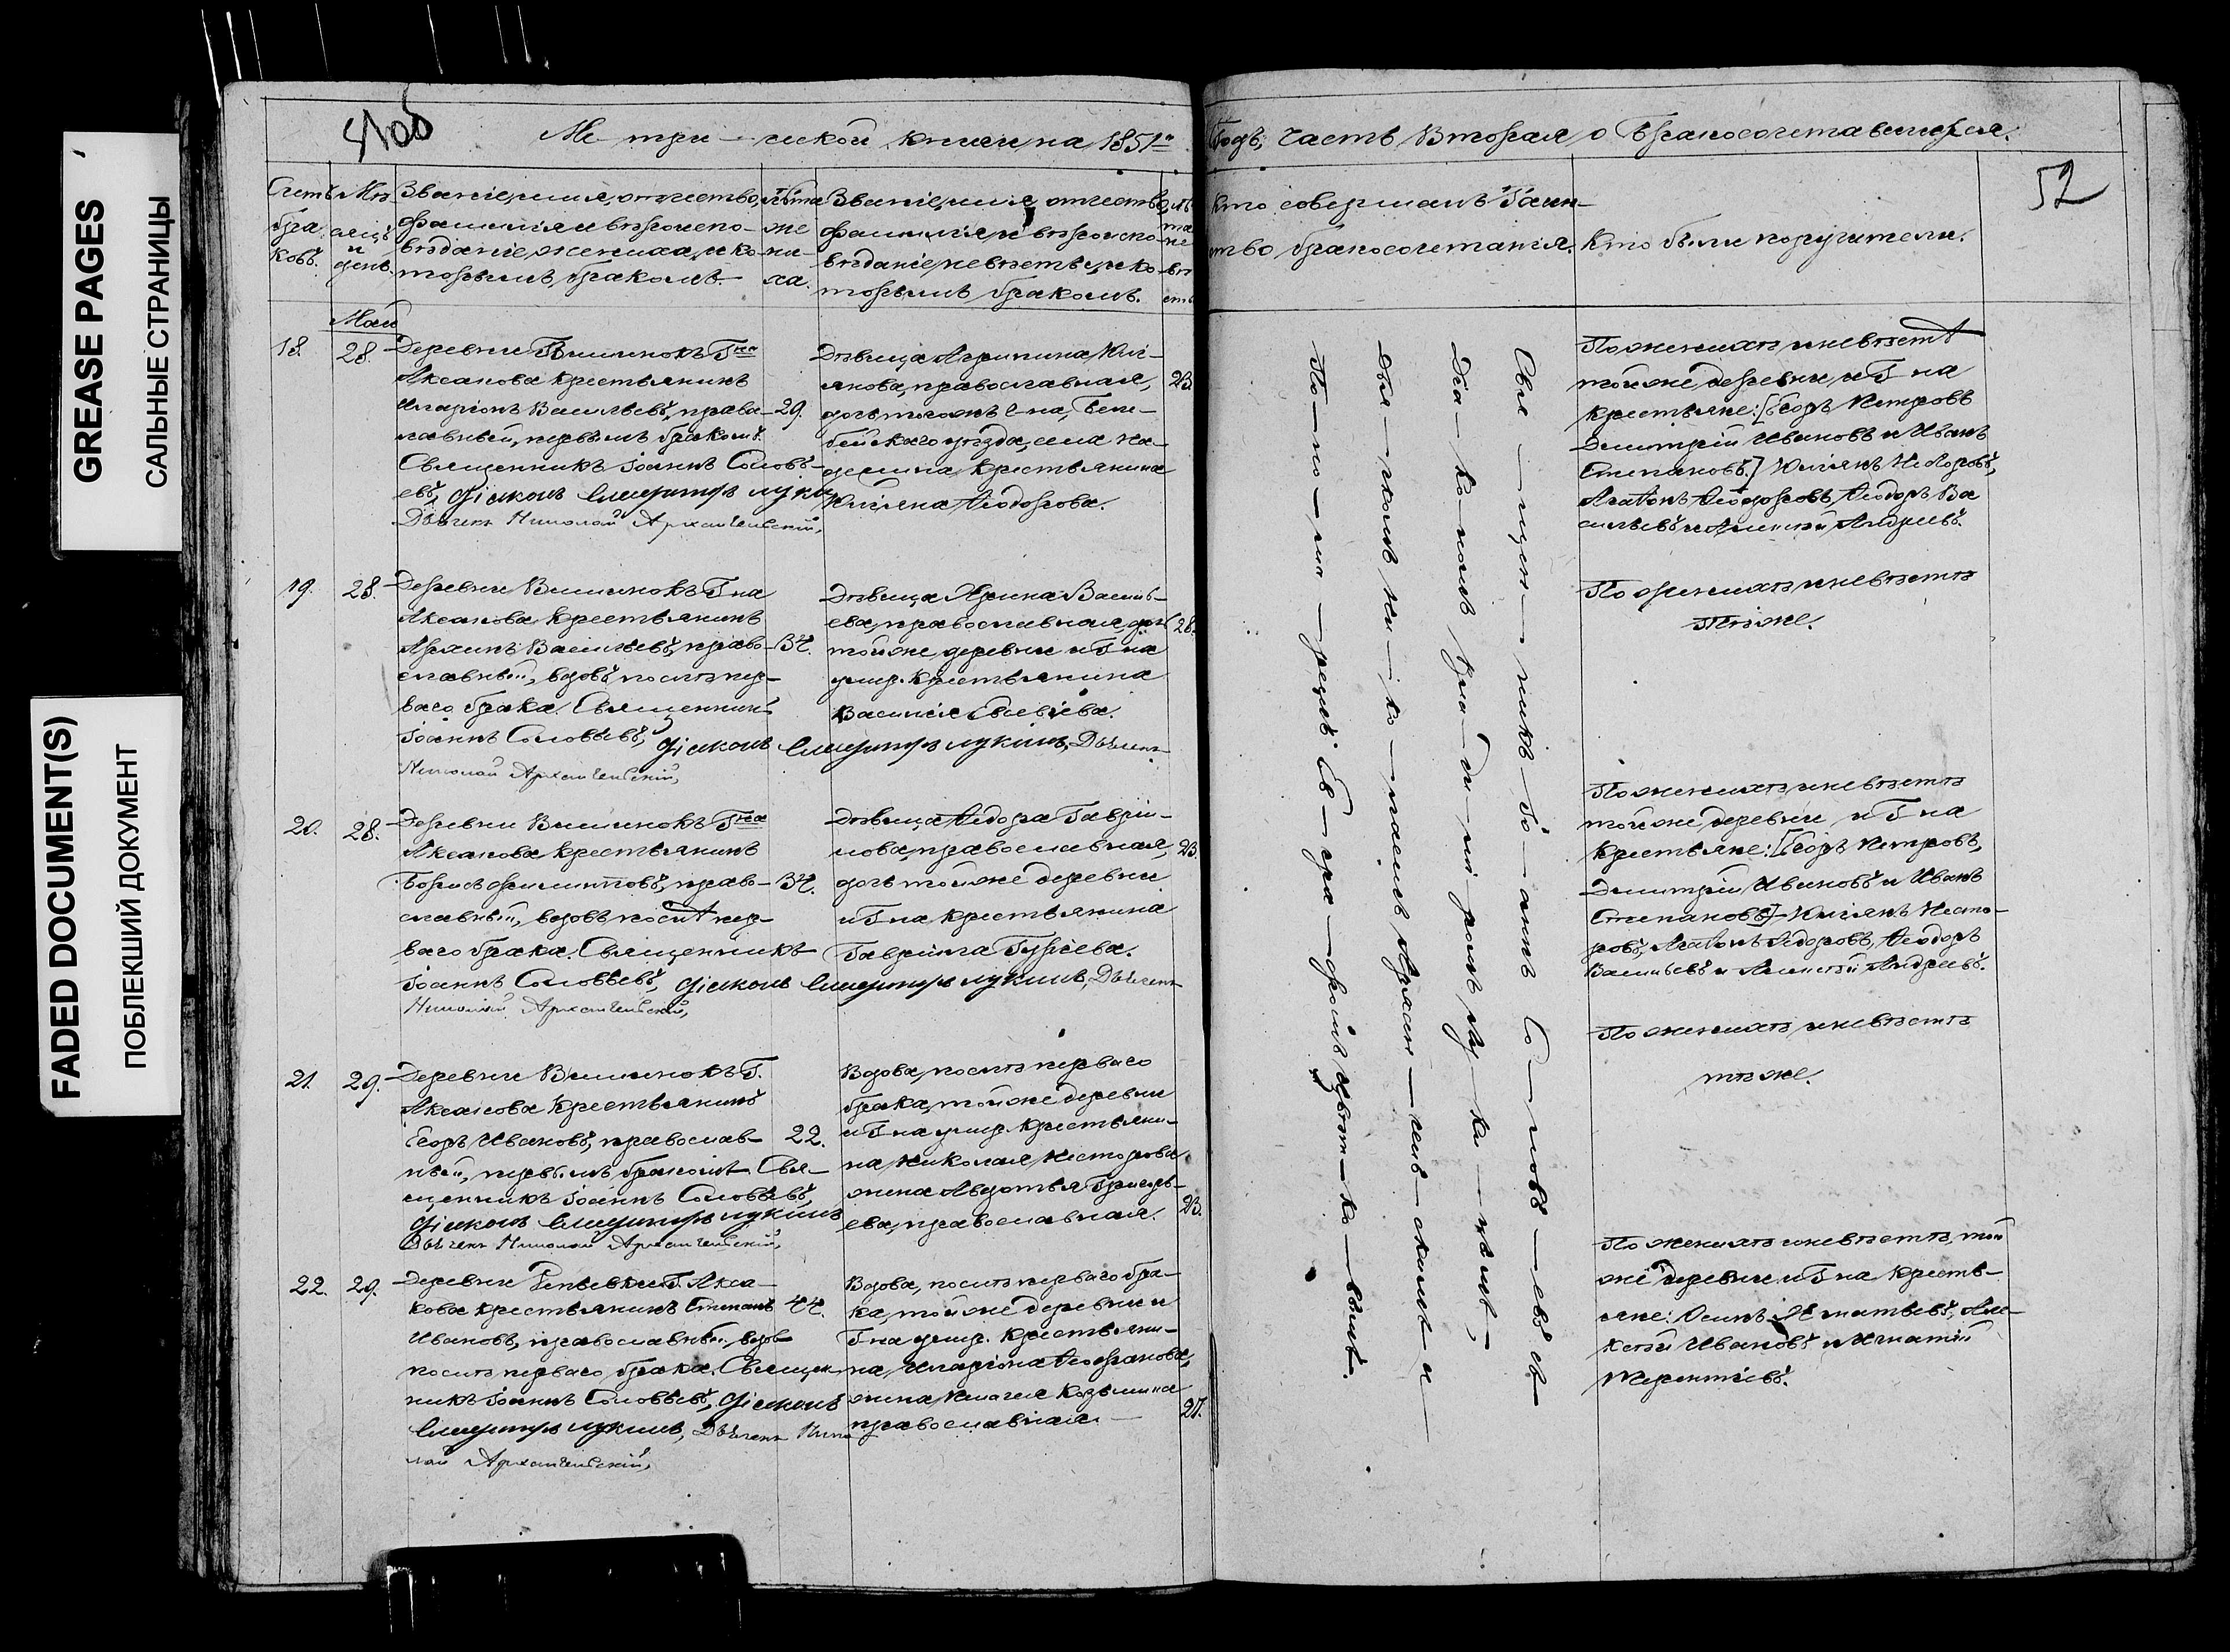 GREASE PAGES
САЛЬНЫЕ СТРАНИЦЫ
FADED DOCUMENT(S)
ПОБЛЕКШИЙ ДОКУМЕНТ
Метрической книги на 1851й
Годъ, часть вторая о бракосочетавшихся.
52
Счетъ браковъ.
Мѣсяцъ и день.
Званіе, имя, отчество,
фамилія и вѣроиспо-
вѣданіе жениха, и ко-
торымъ бракомъ.
Лѣта жениха.
Званіе, имя, отчество,
фамилія и вѣроиспо-
вѣданіе невѣсты, и ко-
торымъ бракомъ.
Лѣта невѣсты
Кто совершалъ таин-
ство бракосочетанія.
Кто были поручители.
Май
18.
28.
Деревни Вишнокъ Гна
Аксакова крестьянинъ
Иларіонъ Васильевъ, право-
славный, первымъ бракомъ.
Священникъ Іоаннъ Соловь-
евъ, Діаконъ Лукин
Дьячекъ Николай Архангельскій,
29.
Дѣвица Агрипина Кип-
янова, православная,
дочь того же Г-на, Беле-
бейскаго уѣзда, села На-
деждина крестьянина
Кипіяна Ѳеодорова.
23.
По женихѣ и невѣстѣ
той же деревни и Г на
крестьяне: [Егоръ Петровъ
Димитрій Ивановъ и Иванъ
Степановъ.] Кипіянъ Несторовъ,
Агаѳонъ Ѳеодоровъ, Ѳеодоръ Ва
сильевъ и Алексѣй Андреевъ.
19.
28.
Деревни Вишнокъ Г на
Аксакова крестьянинъ
Архипъ Васильевъ, право-
славный, вдовъ послѣ пер-
ваго брака. Священникъ
Іоаннъ Соловьевъ, Діаконъ Лукинъ, Дьячекъ
Николай Архангельскій,
34.
Дѣвица Ирина Василь-
ева, православная, дочь
той же деревни и Г на
умер. крестьянина
Василія Евсѣева.
28.
По женихѣ и невѣстѣ
тѣ же.
20.
28.
Деревни Вишнокъ Гна
Аксакова крестьянинъ
Борисъ Филипповъ, право-
славный, вдовъ послѣ пер-
ваго брака. Священникъ
Іоаннъ Соловьевъ, Діаконъ Лукинъ, Дьячекъ
Николай Архангельскій,
34.
Дѣвица Ѳедора Гаврии-
лова, православная,
дочь той же деревни
и Г на крестьянина
Гавріила Гурьева.
23.
По женихѣ и невѣстѣ
той же деревни и Г на
крестьяне: [Егоръ Петровъ,
Димитрій Ивановъ и Иванъ
Степановъ]- Кипіянъ Несто-
ровъ, Агаѳонъ Ѳедоровъ, Ѳеодоръ
Васильевъ и Алексѣй Андреевъ.
21.
29.
Деревни Вишнокъ Г.
Аксакова крестьянинъ
Егоръ Ивановъ, православ-
ный, первымъ бракомъ Свя-
щенникъ Іоаннъ Соловьевъ,
Діаконъ Лукинъ
Дьячекъ Николай Архангельскій,
22.
Вдова, послѣ перваго
брака, той же деревни
и Г на умер. крестьяни-
на Николая Несторова
жена Авдотья Григорь-
ева, православная.
23.
По женихѣ и невѣстѣ
тѣ же.
22.
29.
Деревни Репьевки Г. Акса-
кова крестьянинъ Степанъ
Ивановъ, православный, вдовъ
послѣ перваго брака. Священ-
никъ Іоаннъ Соловьевъ, Діаконъ
Лукинъ, Дьячекъ Нико
лай Архангельскій,
44.
Вдова, послѣ перваго бра-
ка, той же деревни и
Г на умер. крестьяни-
на Иларіона
жена Козьмина
православная
27.
По женихѣ и невѣстѣ, той
же деревни и Г на кресть-
яне: Осипъ Игнатьевъ, Але-
ксѣй Ивановъ и Игнатій
Терентіевъ.
Свя-щен-никъ Іо-аннъ Со-ловь-евъ съ
Діа-ко-номъ Лу-ки-нымъ,
Дья-чкомъ Ни-ко-лаемъ Архан-гель-скимъ и
По-но-ма-ремъ Цвѣт-ко-вымъ.